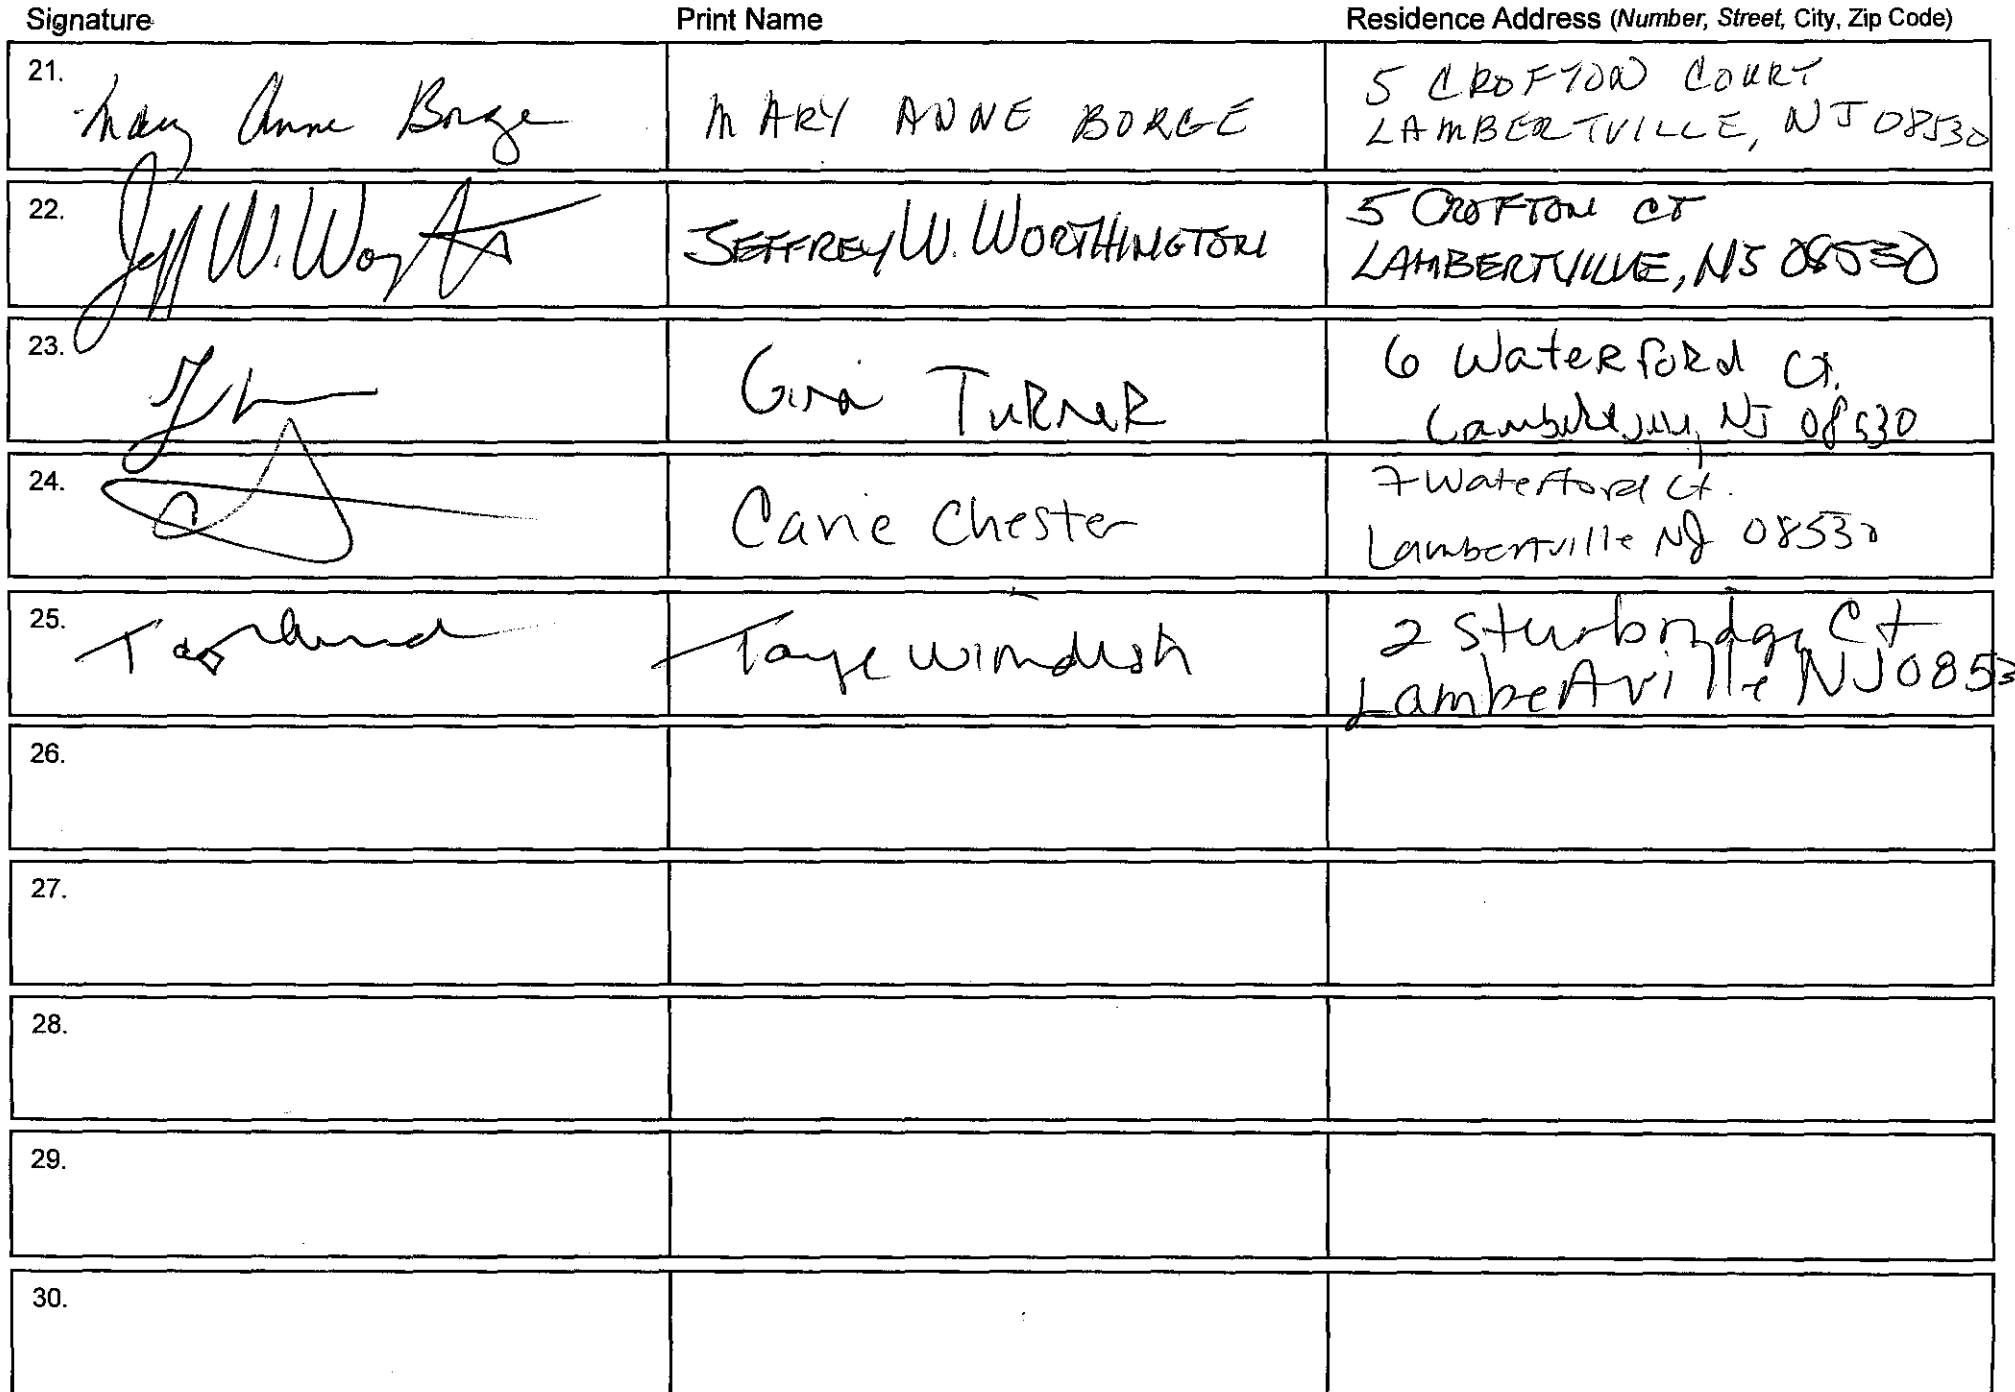 Signature Print Name Residence Address (Number, Street, City, Zip Code)
21. Mary Anne Borge MARY ANNE BORGE 5 CROFTON COURT
LAMBERTVILLE, NJ 08530
22. Jeff W. Worthington JEFFREY W. WORTHINGTON 5 CROFTON CT
LAMBERTVILLE, NJ 08530
23. Gina TURNER 6 Waterford Ct.
Lambertville, NJ 08530
24. Carie Chester 7 Waterford Ct.
Lambertville NJ 08530
25. Taye Windish 2 Sturbridge Ct
Lambertville NJ 0853
26.
27.
28.
29.
30.